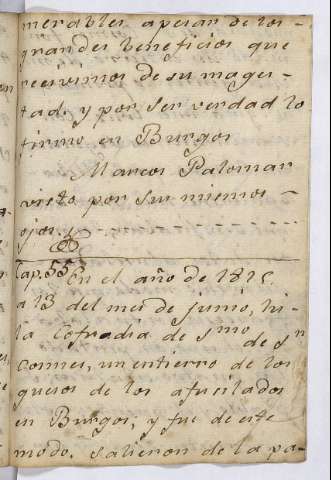 merables apesar de los
grandes beneficios que
recivimos de su mages-
tad. y por ser verdad lo
firmo en Burgos
Marcos Palomar
visto por sus mismos
ojos
Cap. 55 En el año de 1815.
a 13 del mes de junio, hi-
la Cofradia de Smo de Sn
Cosmes, un entierro de los
guesos de los afusilados
en Burgos, y fue de este
modo. salieron de la pa-